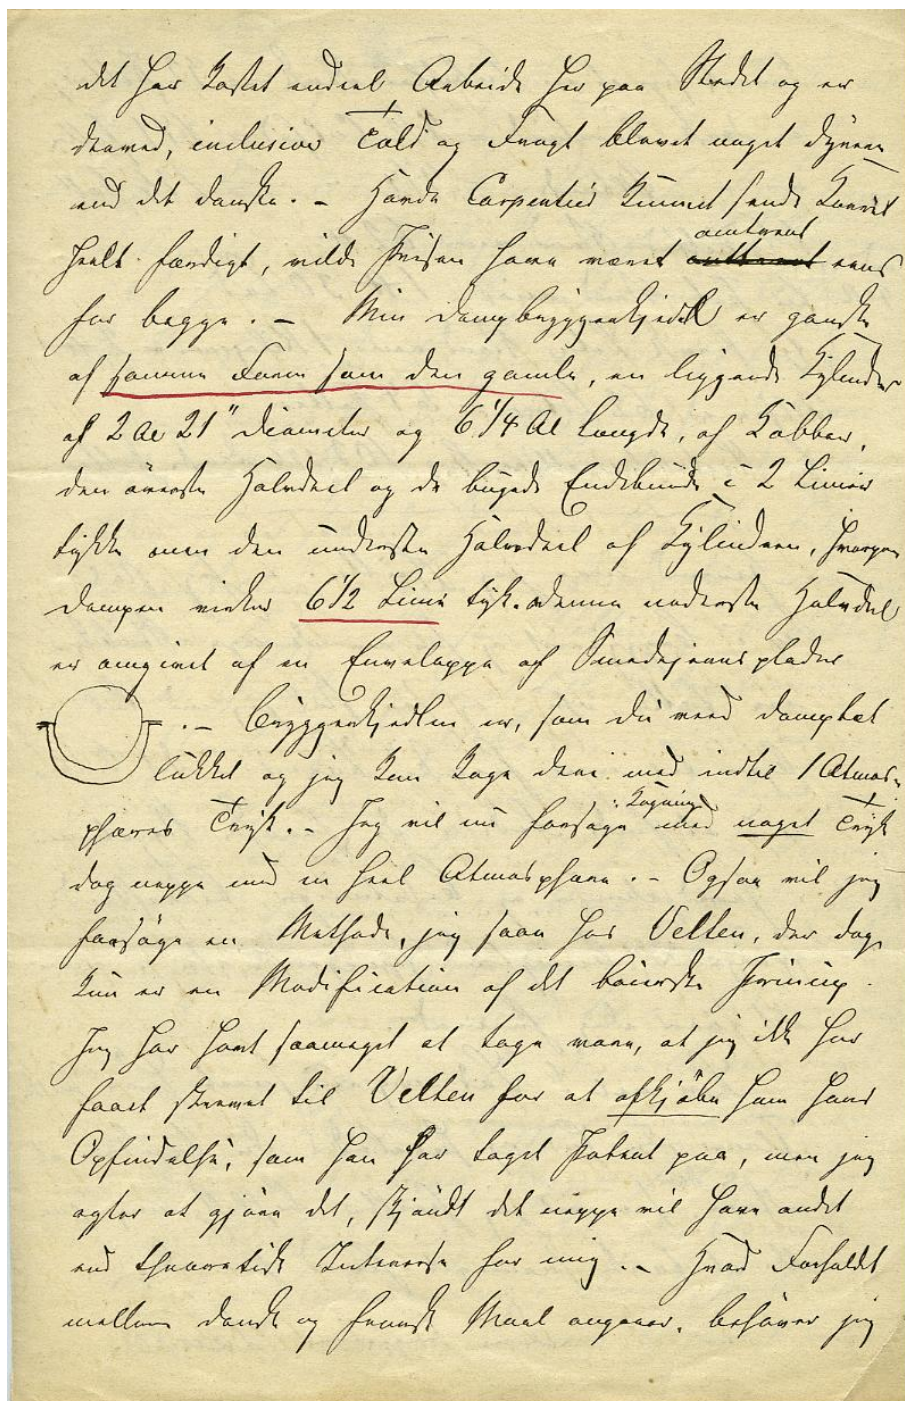 det har kostet endeel Arbeide her paa Stedet og er
derved, inclusive Told og Fragt blevet noget dyrere
end det danske. – Havde Carpentier kunnet sende Karret
heelt færdigt, vilde Prisen have været omtrent eens
for begge. – Min Dampbryggerkjedel er ganske
af samme Form som den gamle, en liggende Cylinder
af 2 Al 21" Diameter og 6 1/4 Al Længde, af Kobber,
den øverste Halvdeel og de bugede Endebunde i 2 Linier
tykke men den underste Halvdeel af Cylindren, hvorpaa
Dampen virker 6 1/2 Linie tyk. Denne nederste Halvdeel
er omgivet af en Enveloppe af Smedejernsplader
. – Bryggerkjedlen er, som Du veed damptæt
lukket og jeg kan koge deri med indtil 1 Atmos-
phæres Tryk. – Jeg vil nu forsøge Kogning med noget Tryk
dog neppe med en heel Atmosphære. – Ogsaa vil jeg
forsøge en Methode, jeg saae hos Velten, der dog
kun er en Modification af det baierske Princip.
Jeg har havt saameget at tage vare, at jeg ikke har
faaet skrevet til Velten for at afkjøbe ham hans
Opfindelse, som han har taget Patent paa, men jeg
agter at gjøre det, skjøndt det neppe vil have andet
end theoretisk Interesse for mig. – Hvad Forholdet
mellem dansk og fransk Maal angaaer, behøver jeg